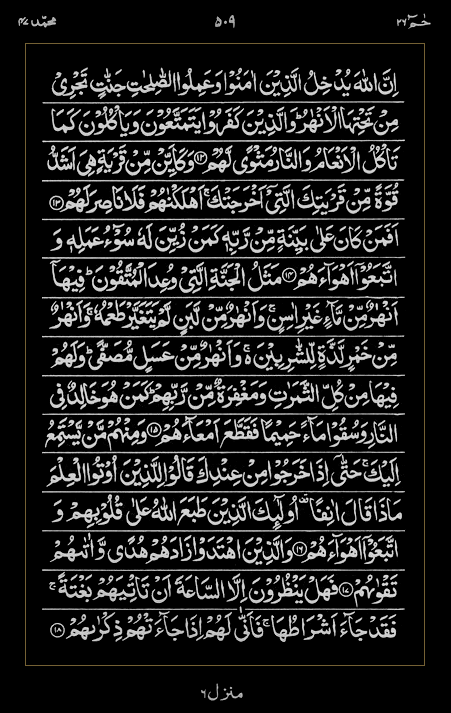 حٰمٓ ٢٦ ٥٠٩ محمّد ٤٧
اِنَّ اللّٰهَ يُدْخِلُ الَّذِيْنَ اٰمَنُوْا وَعَمِلُوا الصّٰلِحٰتِ جَنّٰتٍ تَجْرِىْ
مِنْ تَحْتِهَا الْاَنْهٰرُ ؕ وَالَّذِيْنَ كَفَرُوْا يَتَمَتَّعُوْنَ وَيَاْكُلُوْنَ كَمَا
تَاْكُلُ الْاَنْعَامُ وَالنَّارُ مَثْوًى لَّهُمْ ﴿۱۲﴾ وَكَاَيِّنْ مِّنْ قَرْيَةٍ هِىَ اَشَدُّ
قُوَّةً مِّنْ قَرْيَتِكَ الَّتِىْۤ اَخْرَجَتْكَ ۚ اَهْلَكْنٰهُمْ فَلَا نَاصِرَ لَهُمْ ﴿۱۳﴾
اَفَمَنْ كَانَ عَلٰى بَيِّنَةٍ مِّنْ رَّبِّهٖ كَمَنْ زُيِّنَ لَهٗ سُوْٓءُ عَمَلِهٖ وَ
اتَّبَعُوْۤا اَهْوَآءَهُمْ ﴿۱۴﴾ مَثَلُ الْجَنَّةِ الَّتِىْ وُعِدَ الْمُتَّقُوْنَ ؕ فِيْهَاۤ
اَنْهٰرٌ مِّنْ مَّآءٍ غَيْرِ اٰسِنٍ ۚ وَاَنْهٰرٌ مِّنْ لَّبَنٍ لَّمْ يَتَغَيَّرْ طَعْمُهٗ ۚ وَاَنْهٰرٌ
مِّنْ خَمْرٍ لَّذَّةٍ لِّلشّٰرِبِيْنَ ۚ۬ وَاَنْهٰرٌ مِّنْ عَسَلٍ مُّصَفًّى ؕ وَلَهُمْ
فِيْهَا مِنْ كُلِّ الثَّمَرٰتِ وَمَغْفِرَةٌ مِّنْ رَّبِّهِمْ ؕ كَمَنْ هُوَ خَالِدٌ فِى
النَّارِ وَسُقُوْا مَآءً حَمِيْمًا فَقَطَّعَ اَمْعَآءَهُمْ ﴿۱۵﴾ وَمِنْهُمْ مَّنْ يَّسْتَمِعُ
اِلَيْكَ ۚ حَتّٰٓى اِذَا خَرَجُوْا مِنْ عِنْدِكَ قَالُوْا لِلَّذِيْنَ اُوْتُوا الْعِلْمَ
مَاذَا قَالَ اٰنِفًا ۫ اُولٰٓئِكَ الَّذِيْنَ طَبَعَ اللّٰهُ عَلٰى قُلُوْبِهِمْ وَ
اتَّبَعُوْۤا اَهْوَآءَهُمْ ﴿۱۶﴾ وَالَّذِيْنَ اهْتَدَوْا زَادَهُمْ هُدًى وَّاٰتٰٮهُمْ
تَقْوٰٮهُمْ ﴿۱۷﴾ فَهَلْ يَنْظُرُوْنَ اِلَّا السَّاعَةَ اَنْ تَاْتِيَهُمْ بَغْتَةً ۚ
فَقَدْ جَآءَ اَشْرَاطُهَا ۚ فَاَنّٰى لَهُمْ اِذَا جَآءَتْهُمْ ذِكْرٰٮهُمْ ﴿۱۸﴾
منزل ٦